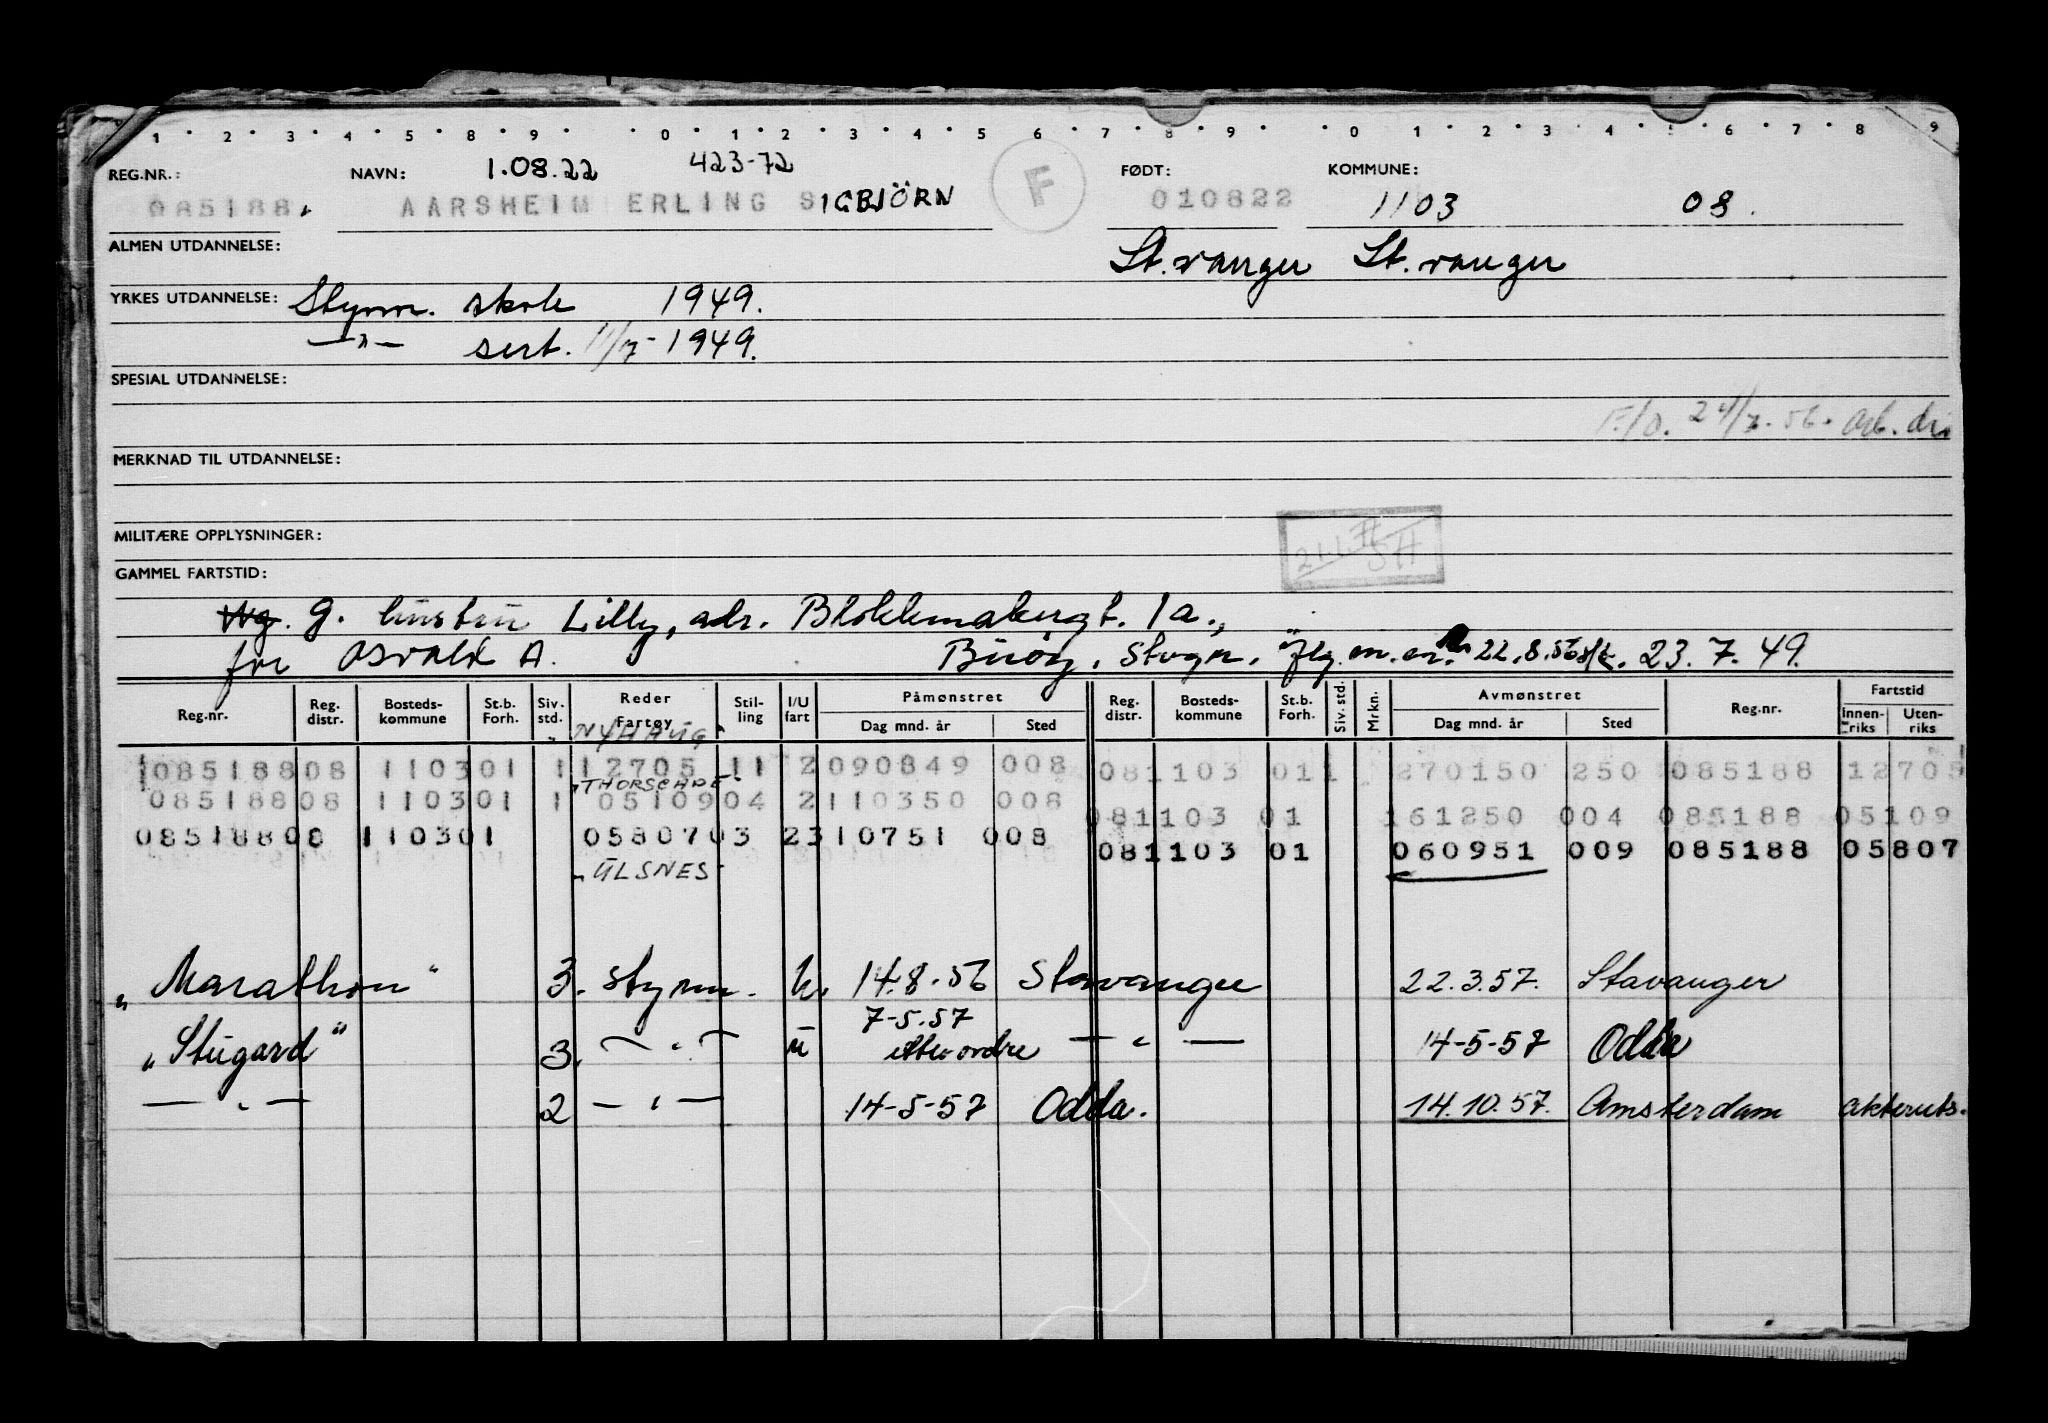 1 2 3 4 5 8 9 0 1 2 3 4 5 6 7 8 9 0 1 2 3 4 5 6 7 8 9
REG.NR.: NAVN: 1.08.22 423-72 F FØDT: KOMMUNE:
085188. AARSHEIM ERLING SIGBJÖRN 010822 1103 08.
ALMEN UTDANNELSE: St.vanger St.vanger
YRKES UTDANNELSE: Styrm. skole 1949.
—"— sert. 11/7-1949.
SPESIAL UTDANNELSE:
F/O. 56.
MERKNAD TIL UTDANNELSE:
MILITÆRE OPPLYSNINGER:
GAMMEL FARTSTID:
g. Lilly, adr. 1a.,
Osvald A. Buöy, Stvgr. 22.8.56 23.7.49.
Reg.nr. Reg. distr. Bosteds-kommune St.b. Forh. Siv. std. Reder Fartøy Stil-ling I/U fart Påmønstret Dag mnd. år Sted Reg. distr. Bosteds-kommune St.b. Forh. Siv. std. Mrkn. Avmønstret Dag mnd. år Sted Reg.nr. Fartstid Innen-riks Uten-riks
NYHAUG
085188 08 1103 01 1 12705 11 2 090849 008 08 1103 01 1 270150 250 085188 12705
085188 08 1103 01 1 05109 04 2 110350 008 08 1103 01 161250 004 085188 05109
085188 08 1103 01 05807 03 2 310751 008 08 1103 01 060951 009 085188 05807
"ULSNES"
"Marathon" 3. styrm. u. 14.8.56 Stavanger 22.3.57. Stavanger
7-5.57
"Stugard" 3. —"— u etter ordre —"— 14-5-57 Odda
—"— 2 —"— 14-5-57 Odda. 14.10.57. Amsterdam akteruts.